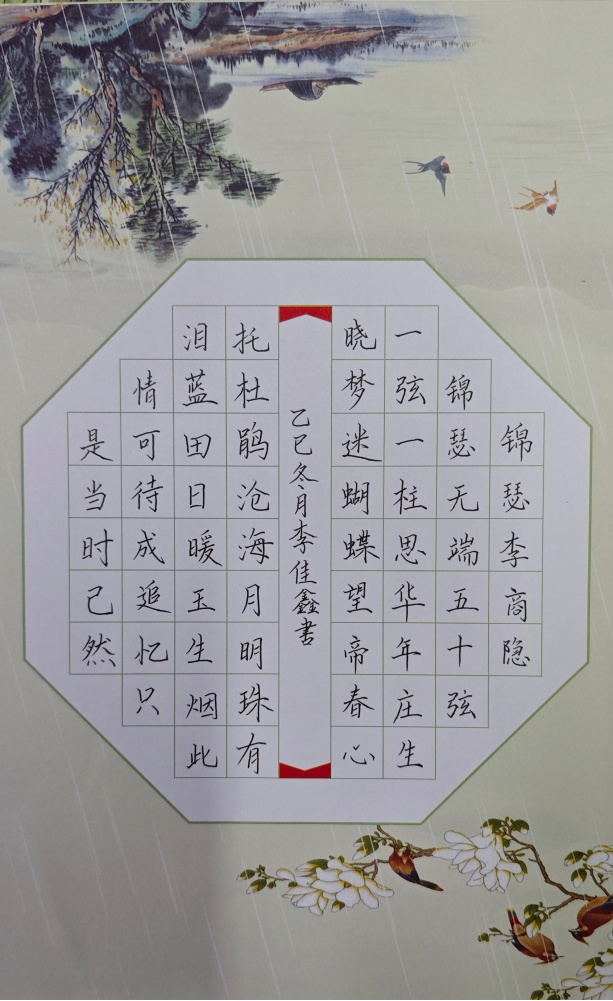 锦瑟李商隐
锦瑟无端五十弦
一弦一柱思华年庄生
晓梦迷蝴蝶望帝春心
托杜鹃沧海月明珠有
泪蓝田日暖玉生烟此
情可待成追忆只
是当时已然
乙巳冬月李佳鑫书